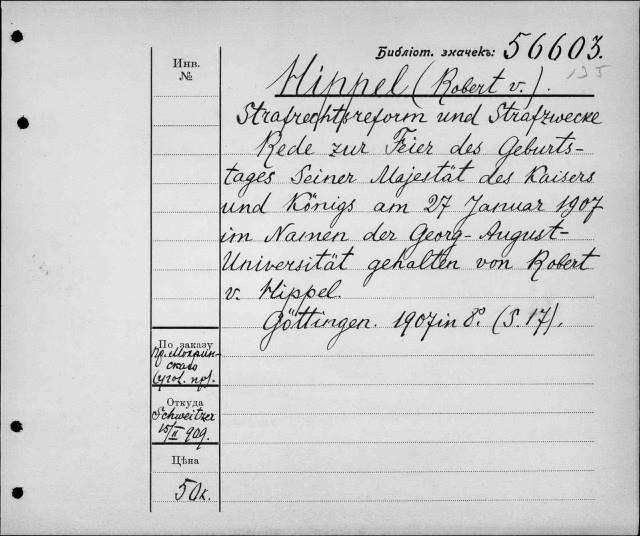 Библіот. значекъ: 56603.
125
Инв.
№
Hippel (Robert v.).
Strafrechtsreform und Strafzwecke
Rede zur Feier des Geburts-
tages Seiner Majestät des Kaisers
und Königs am 27 Januar 1907
im Namen der Georg-August-
Universität gehalten von Robert
v. Hippel.
Göttingen. 1907 in 8º. (S. 17).
По заказу
пр. Мокрин-
скаго
(угол. пр).
Откуда
Schweitzer
15/II 909.
Цѣна
50 к.